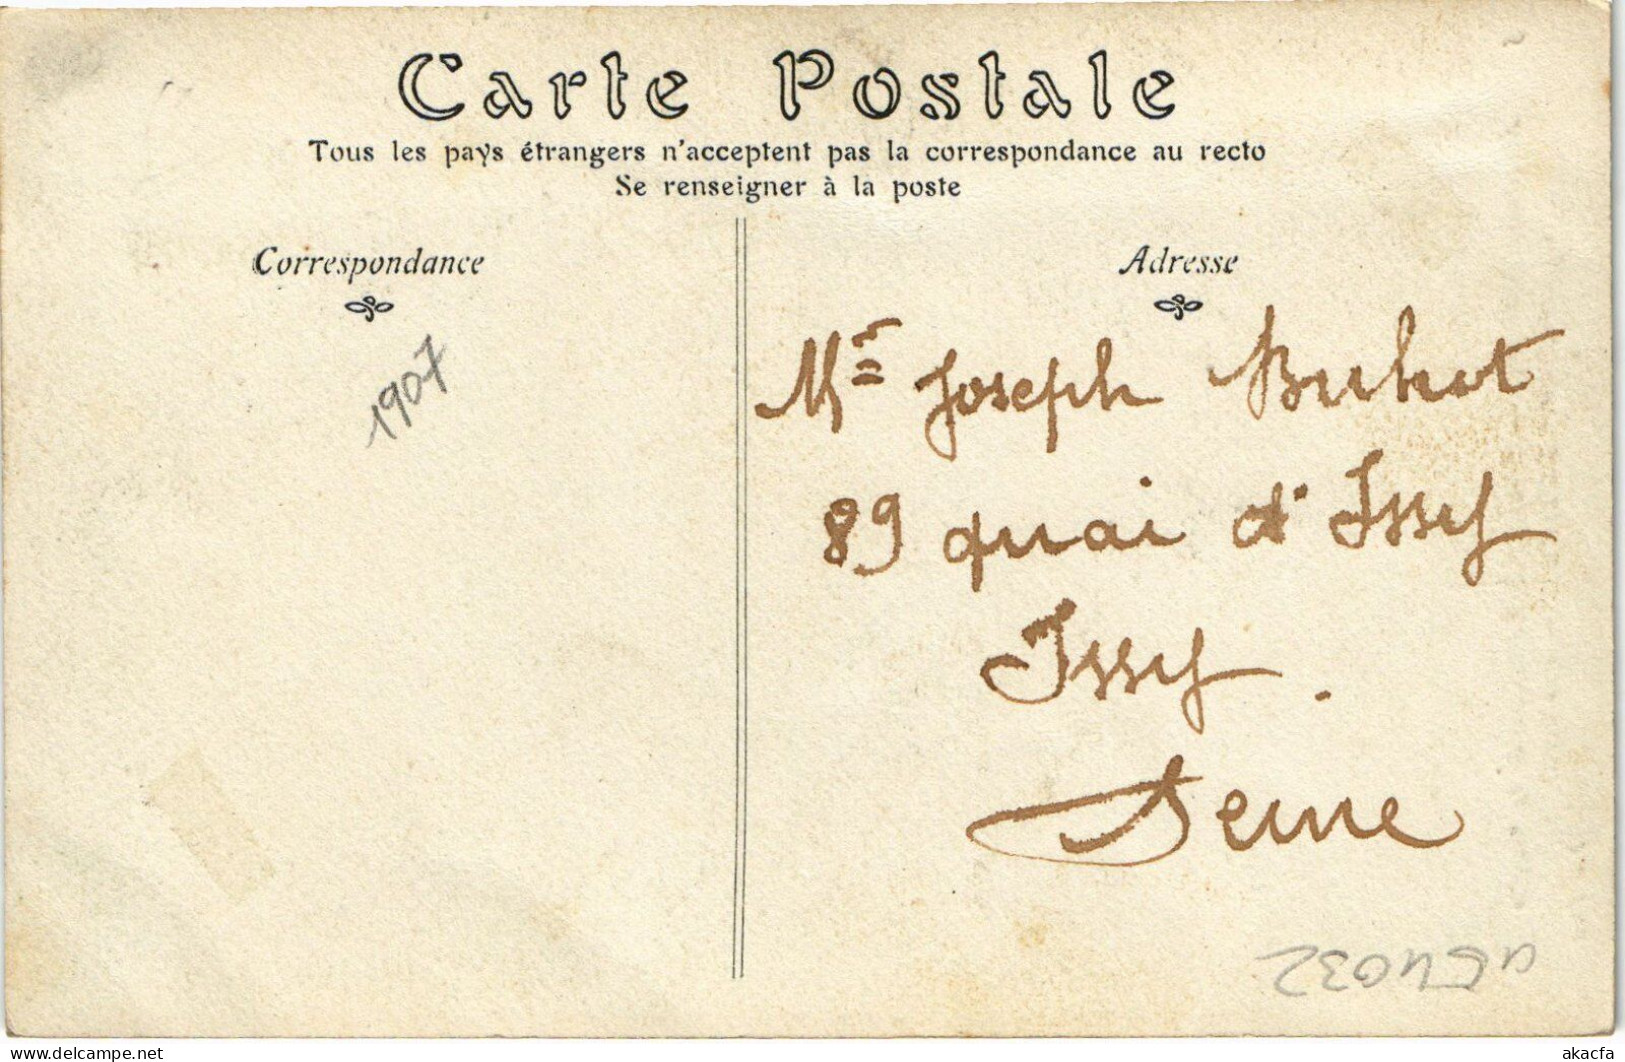 Carte Postale
Tous les pays étrangers n'acceptent pas la correspondance au recto
Se renseigner à la poste
Correspondance
Adresse
1907
Mr Joseph Buhot
89 quai d'Issy
Issy.
Seine
akacfa